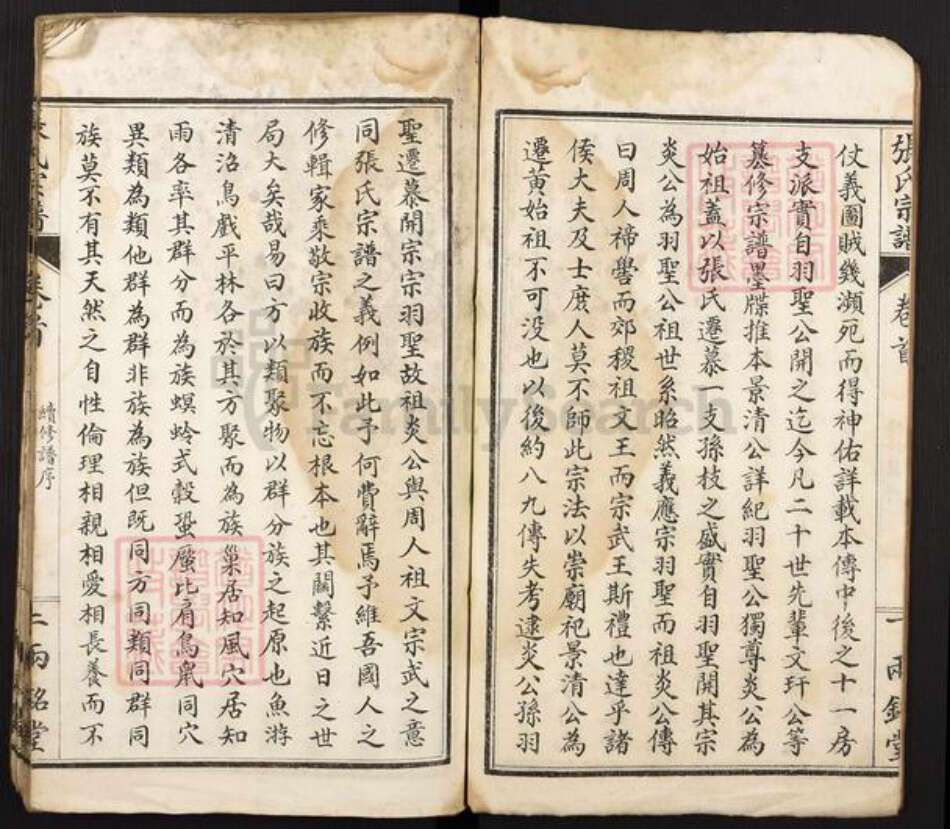 張氏宗譜 卷首 一 兩銘堂
仗義圖賊幾瀕死而得神佑詳載本傳中後之十一房
支派實自羽聖公開之迄今凡二十世先輩文玕公等
纂修宗譜墨牒推本景清公詳紀羽聖公獨尊炎公為
始祖蓋以張氏遷慕一支孫枝之盛實自羽聖開其宗
炎公為羽聖公祖世系昭然義應宗羽聖而祖炎公傳
曰周人禘嚳而郊稷祖文王而宗武王斯禮也達乎諸
侯大夫及士庶人莫不師此宗法以崇廟祀景清公為
遷黃始祖不可没也以後約八九傳失考逮炎公孫羽
聖遷慕開宗宗羽聖故祖炎公與周人祖文宗武之意
同張氏宗譜之義例如此予何費辭焉予維吾國人之
修輯家乘敬宗收族而不忘根本也其關繫近日之世
局大矣哉易曰方以類聚物以群分族之起原也魚游
清沼鳥戲平林各於其方聚而為族巢居知風穴居知
雨各率其群分而為族螟蛉式穀蛩蟨比肩鳥鼠同穴
異類為類他群為群非族為族但既同方同類同群同
族莫不有其天然之自性倫理相親相愛相長養而不
續修譜序
二 兩銘堂
FamilySearch